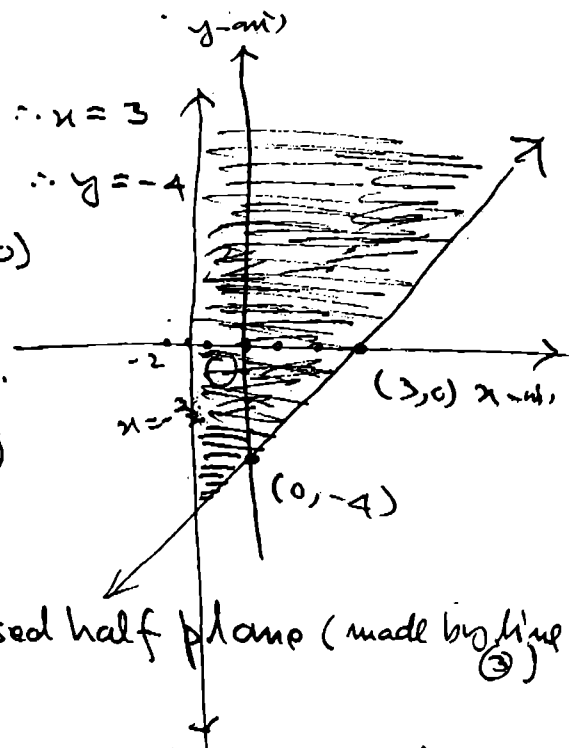 y-axis
∴ x = 3
∴ y = -4
0)
-2
(3,0) x-axis
x = -3/2
)
(0, -4)
sed half plane (made by line ③)